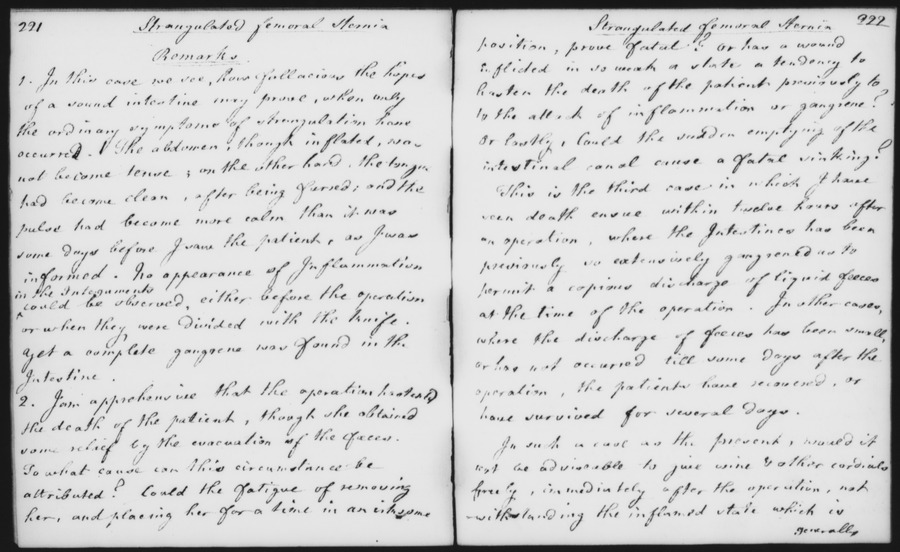 221
Strangulated femoral Hernia
Remarks
1. In this case we see, how fallacious the hopes
of a sound intestine may prove, when only
the ordinary symptoms of strangulation have
occurred. The abdomen, though inflated, was
not become tense; on the other hand the tongue
had become clean, after being furred; and the
pulse had become more calm than it was
some days before I saw the patient, as I was
informed. No appearance of Inflammation
in the Integuments
could be observed, either before the operation
or when they were divided with the knife.
yet a complete gangrene was found in the
Intestine.
2. I am apprehensive that the operation hastened
the death of the patient, though she obtained
some relief by the evacuation of the fæces.
To what cause can this circumstance be
attributed? Could the fatigue of removing
her, and placing her for a time in an irksome
Strangulated femoral Hernia
222
position, prove fatal? or has a wound
inflicted in so weak a state a tendency to
hasten the death of the patient previously to
to the attack of inflammation or gangrene?
Or lastly, Could the sudden emptying of the
intestinal canal cause a fatal sinking?
This is the third case in which I have
seen death ensue within twelve hours after
an operation, where the Intestines has been
previously so extensively gangrened as to
permit a copious discharge of liquid fœces
at the time of the operation. In other cases,
where the discharge of fœces has been small,
or has not occurred till some days after the
operation, the patients have recovered, or
have survived for several days.
In such a case as the present, would it
not be adviseable to give wine & other cordials
freely, immediately after the operation, not
-withstanding the inflamed state which is
generally